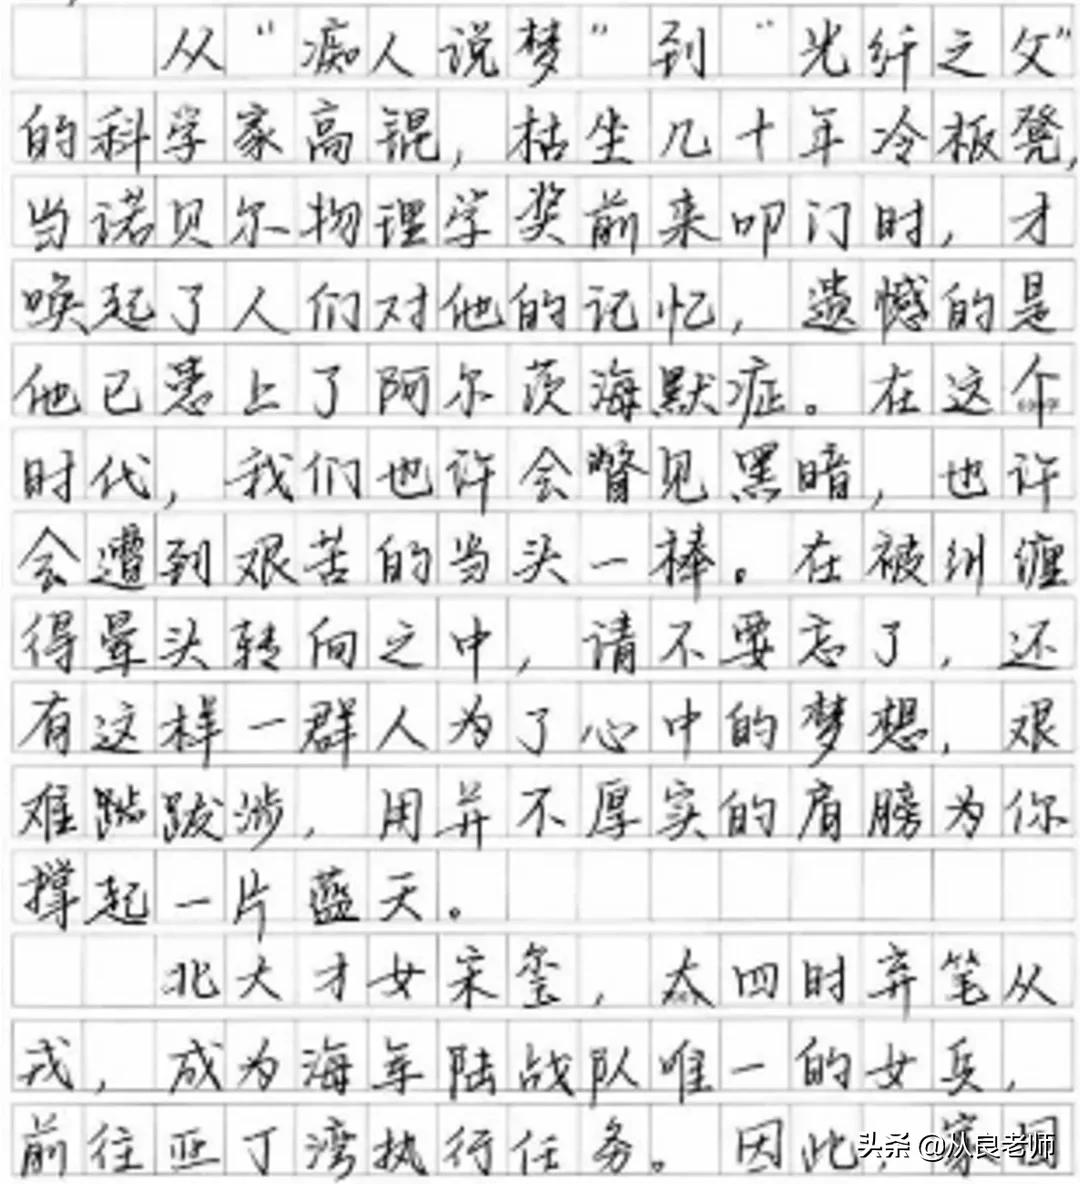 从“痴人说梦”到“光纤之父”
的科学家高锟，枯坐几十年冷板凳，
当诺贝尔物理学奖前来叩门时，才
唤起了人们对他的记忆，遗憾的是
他已患上了阿尔茨海默症。在这个
时代，我们也许会瞥见黑暗，也许
会遭到艰苦的当头一棒。在被纠缠
得晕头转向之中，请不要忘了，还
有这样一群人为了心中的梦想，艰
难跋涉，用并不厚实的肩膀为你
撑起一片蓝天。
北大才女宋玺，大四时弃笔从
戎，成为海军陆战队唯一的女兵，
前往亚丁湾执行任务。因此，
头条 @从良老师